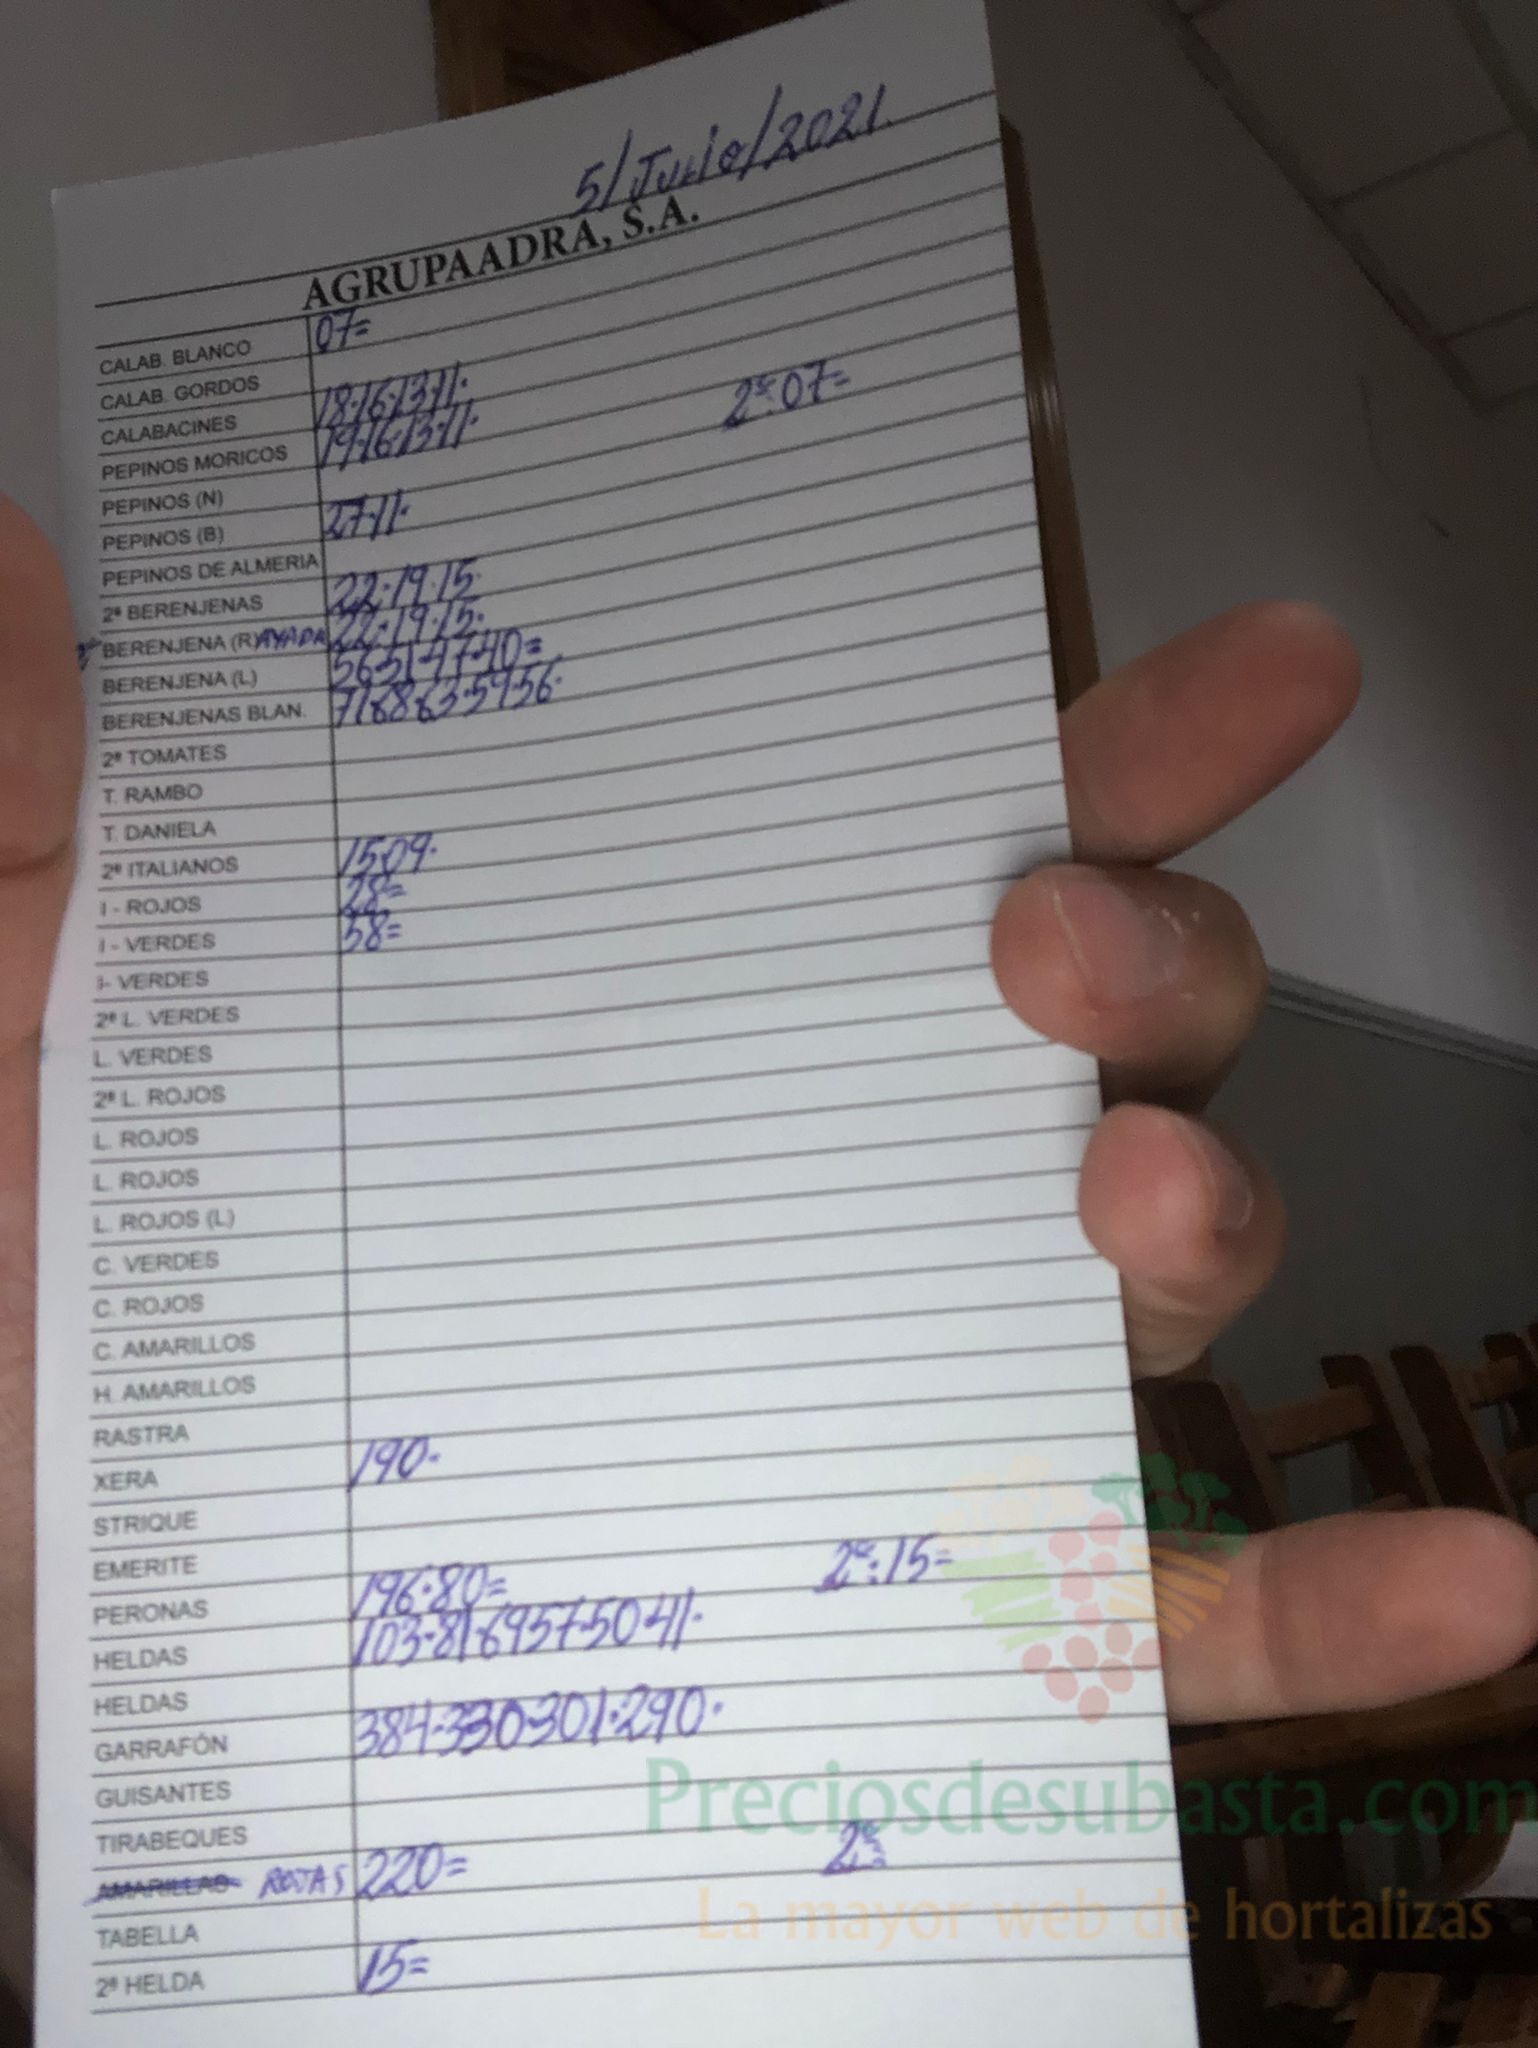 5/Julio/2021.
AGRUPAADRA, S.A.
CALAB. BLANCO 07=
CALAB. GORDOS
CALABACINES 18·16·13·11·
PEPINOS MORICOS 19·16·13·11·
PEPINOS (N) 2ª:07=
PEPINOS (B) 27·11·
PEPINOS DE ALMERIA
2ª BERENJENAS 22·19·15·
2ª BERENJENA (R)AYADA 22·19·15·
BERENJENA (L) 56·51·47·40=
BERENJENAS BLAN. 71·68·63·59·56·
2ª TOMATES
T. RAMBO
T. DANIELA
2ª ITALIANOS 15·09·
I - ROJOS 28=
I - VERDES 58=
I- VERDES
2ª L. VERDES
L. VERDES
2ª L. ROJOS
L. ROJOS
L. ROJOS
L. ROJOS (L)
C. VERDES
C. ROJOS
C. AMARILLOS
H. AMARILLOS
RASTRA
XERA 190·
STRIQUE
EMERITE
PERONAS 196·80= 2ª:15=
HELDAS 103·81·69·57·50·41·
HELDAS
GARRAFÓN 384·330·301·290·
GUISANTES
Preciosdesubasta.com
TIRABEQUES
AMARILLAS ROJAS 220= 2ª:
La mayor web de hortalizas
TABELLA
2ª HELDA 15=